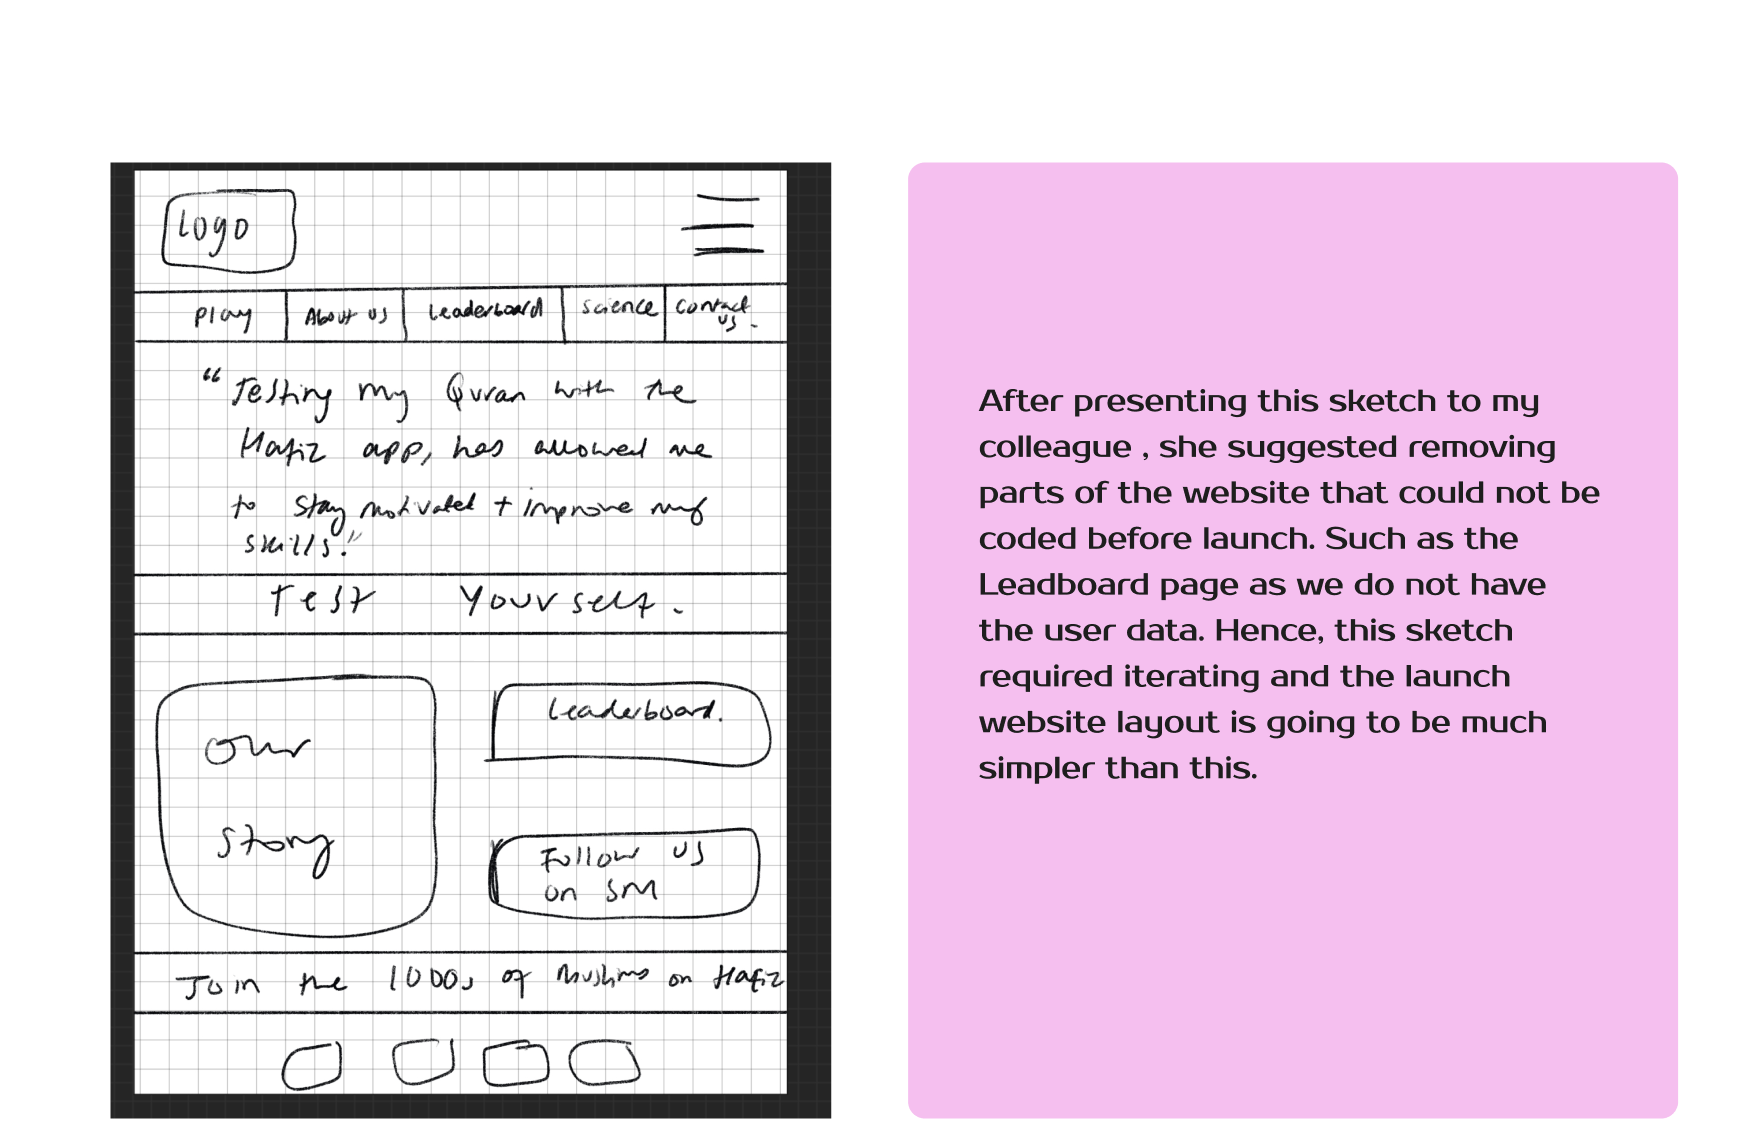 Logo
Play
About us
Leaderboard
Science
Contact
us.
"Testing my Quran with the
Hafiz app, has allowed me
to stay motivated + improve my
skills."
Test Yourself.
Our
Story
Leaderboard.
Follow us
on SM
Join the 1000s of Muslims on Hafiz
After presenting this sketch to my
colleague , she suggested removing
parts of the website that could not be
coded before launch. Such as the
Leadboard page as we do not have
the user data. Hence, this sketch
required iterating and the launch
website layout is going to be much
simpler than this.